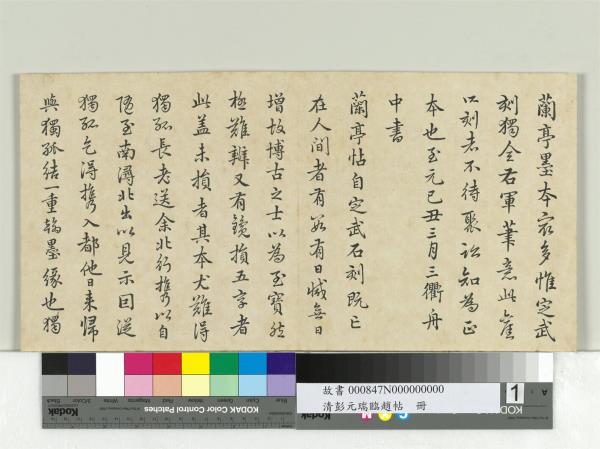 蘭亭墨本最多惟定武
刻獨全右軍筆意此舊
以刻者不待聚訟知為正
本也至元己丑三月三衢舟
中書
蘭亭帖自定武石刻既亡
在人間者有數有日減無日
增故博古之士以為至寶然
極難辨又有鐫損五字者
此蓋未損者其本尤難得
獨孤長老送余北行攜以自
隨至南潯北出以見示因從
獨孤乞得攜入都他日來歸
與獨孤結一重翰墨緣也獨
故書 000847N000000000
清彭元瑞臨趙帖 冊
1
A
KODAK Color Control Patches
Kodak
Blue
Cyan
Green
Yellow
Red
Magenta
White
3/Color
Black